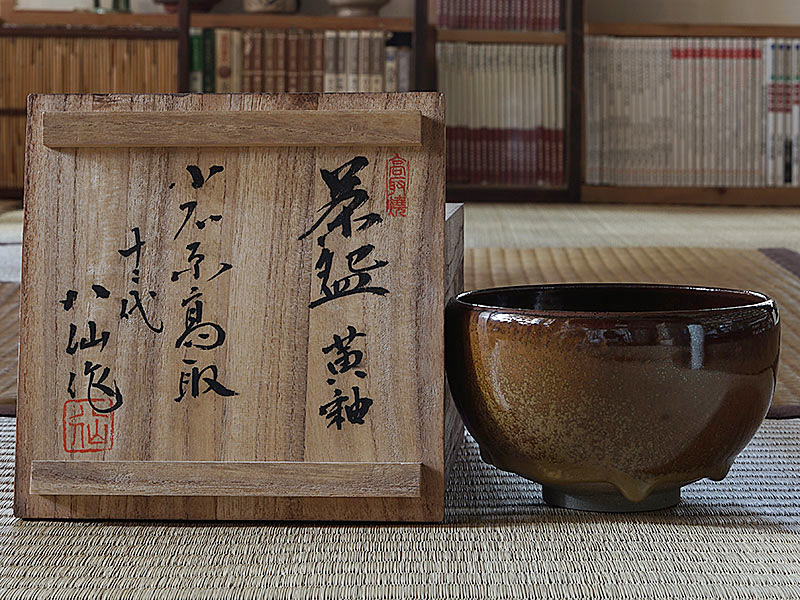 高取焼
茶盌 黄釉
小石原高取
十三代
八仙作
八仙